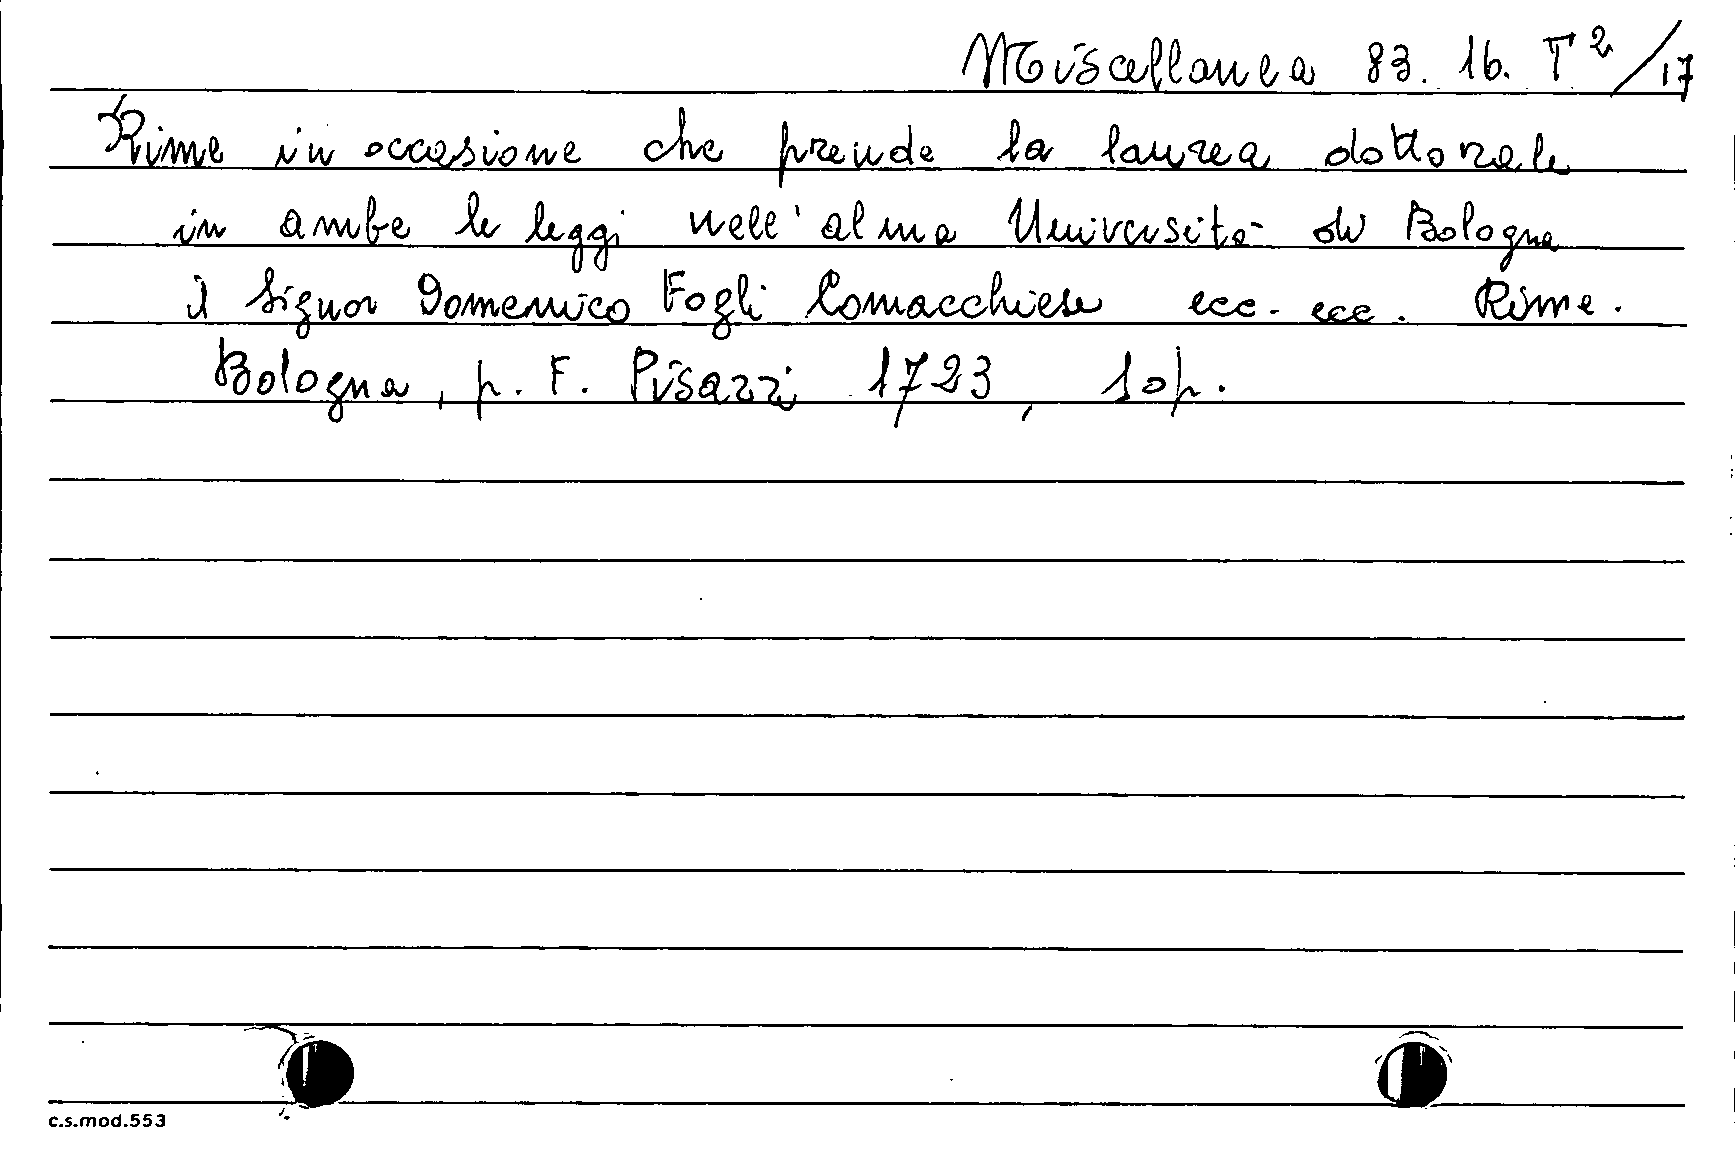 Miscellanea 83. 16. T²/17
Rime in occasione che prende la laurea dottorale
in ambe le leggi nell'alma Università di Bologna
il Signor Domenico Fogli Comacchiese ecc. ecc. Rime.
Bologna, p. F. Pisazzi 1723, 10p.
c.s.mod.553